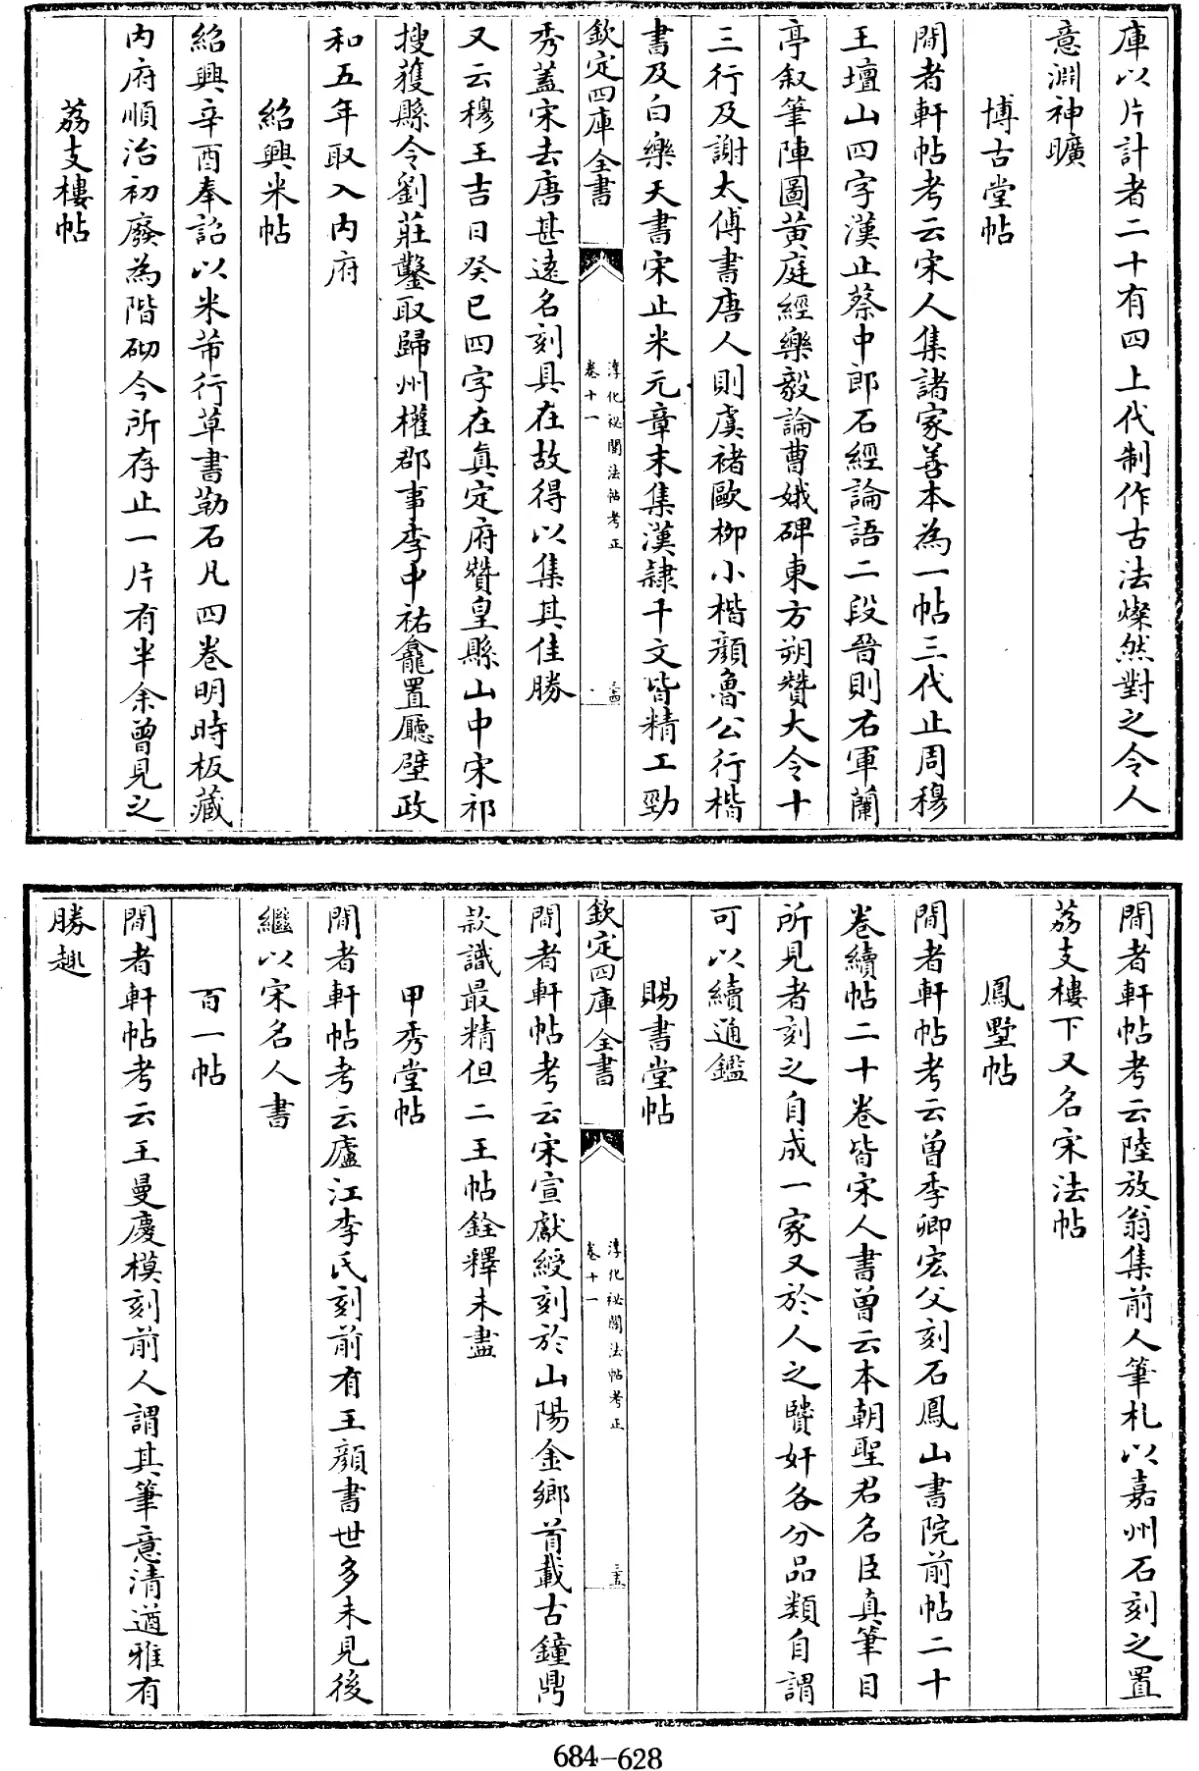 庫以片計者二十有四上代制作古法燦然對之令人
意淵神曠
博古堂帖
閒者軒帖考云宋人集諸家善本為一帖三代止周穆
王壇山四字漢止蔡中郎石經論語二段晉則右軍蘭
亭叙筆陣圖黃庭經樂毅論曹娥碑東方朔贊大令十
三行及謝太傅書唐人則虞褚歐柳小楷顏魯公行楷
書及白樂天書宋止米元章末集漢隸千文皆精工勁
欽定四庫全書
淳化祕閣法帖考正
卷十一
三十四
秀蓋宋去唐甚遠名刻具在故得以集其佳勝
又云穆王吉日癸巳四字在真定府贊皇縣山中宋祁
搜獲縣令劉莊鑿取歸州權郡事李中祐龕置廳壁政
和五年取入內府
紹興米帖
紹興辛酉奉詔以米芾行草書勒石凡四卷明時板藏
內府順治初廢為階砌今所存止一片有半余曾見之
荔支樓帖
閒者軒帖考云陸放翁集前人筆札以嘉州石刻之置
荔支樓下又名宋法帖
鳳墅帖
閒者軒帖考云曾季卿宏父刻石鳳山書院前帖二十
卷續帖二十卷皆宋人書曾云本朝聖君名臣真筆目
所見者刻之自成一家又於人之賢奸各分品類自謂
可以續通鑑
賜書堂帖
欽定四庫全書
淳化祕閣法帖考正
卷十一
三十五
閒者軒帖考云宋宣獻綬刻於山陽金鄉首載古鐘鼎
款識最精但二王帖銓釋未盡
甲秀堂帖
閒者軒帖考云廬江李氏刻前有王顏書世多未見後
繼以宋名人書
百一帖
閒者軒帖考云王曼慶模刻前人謂其筆意清遒雅有
勝趣
684-628